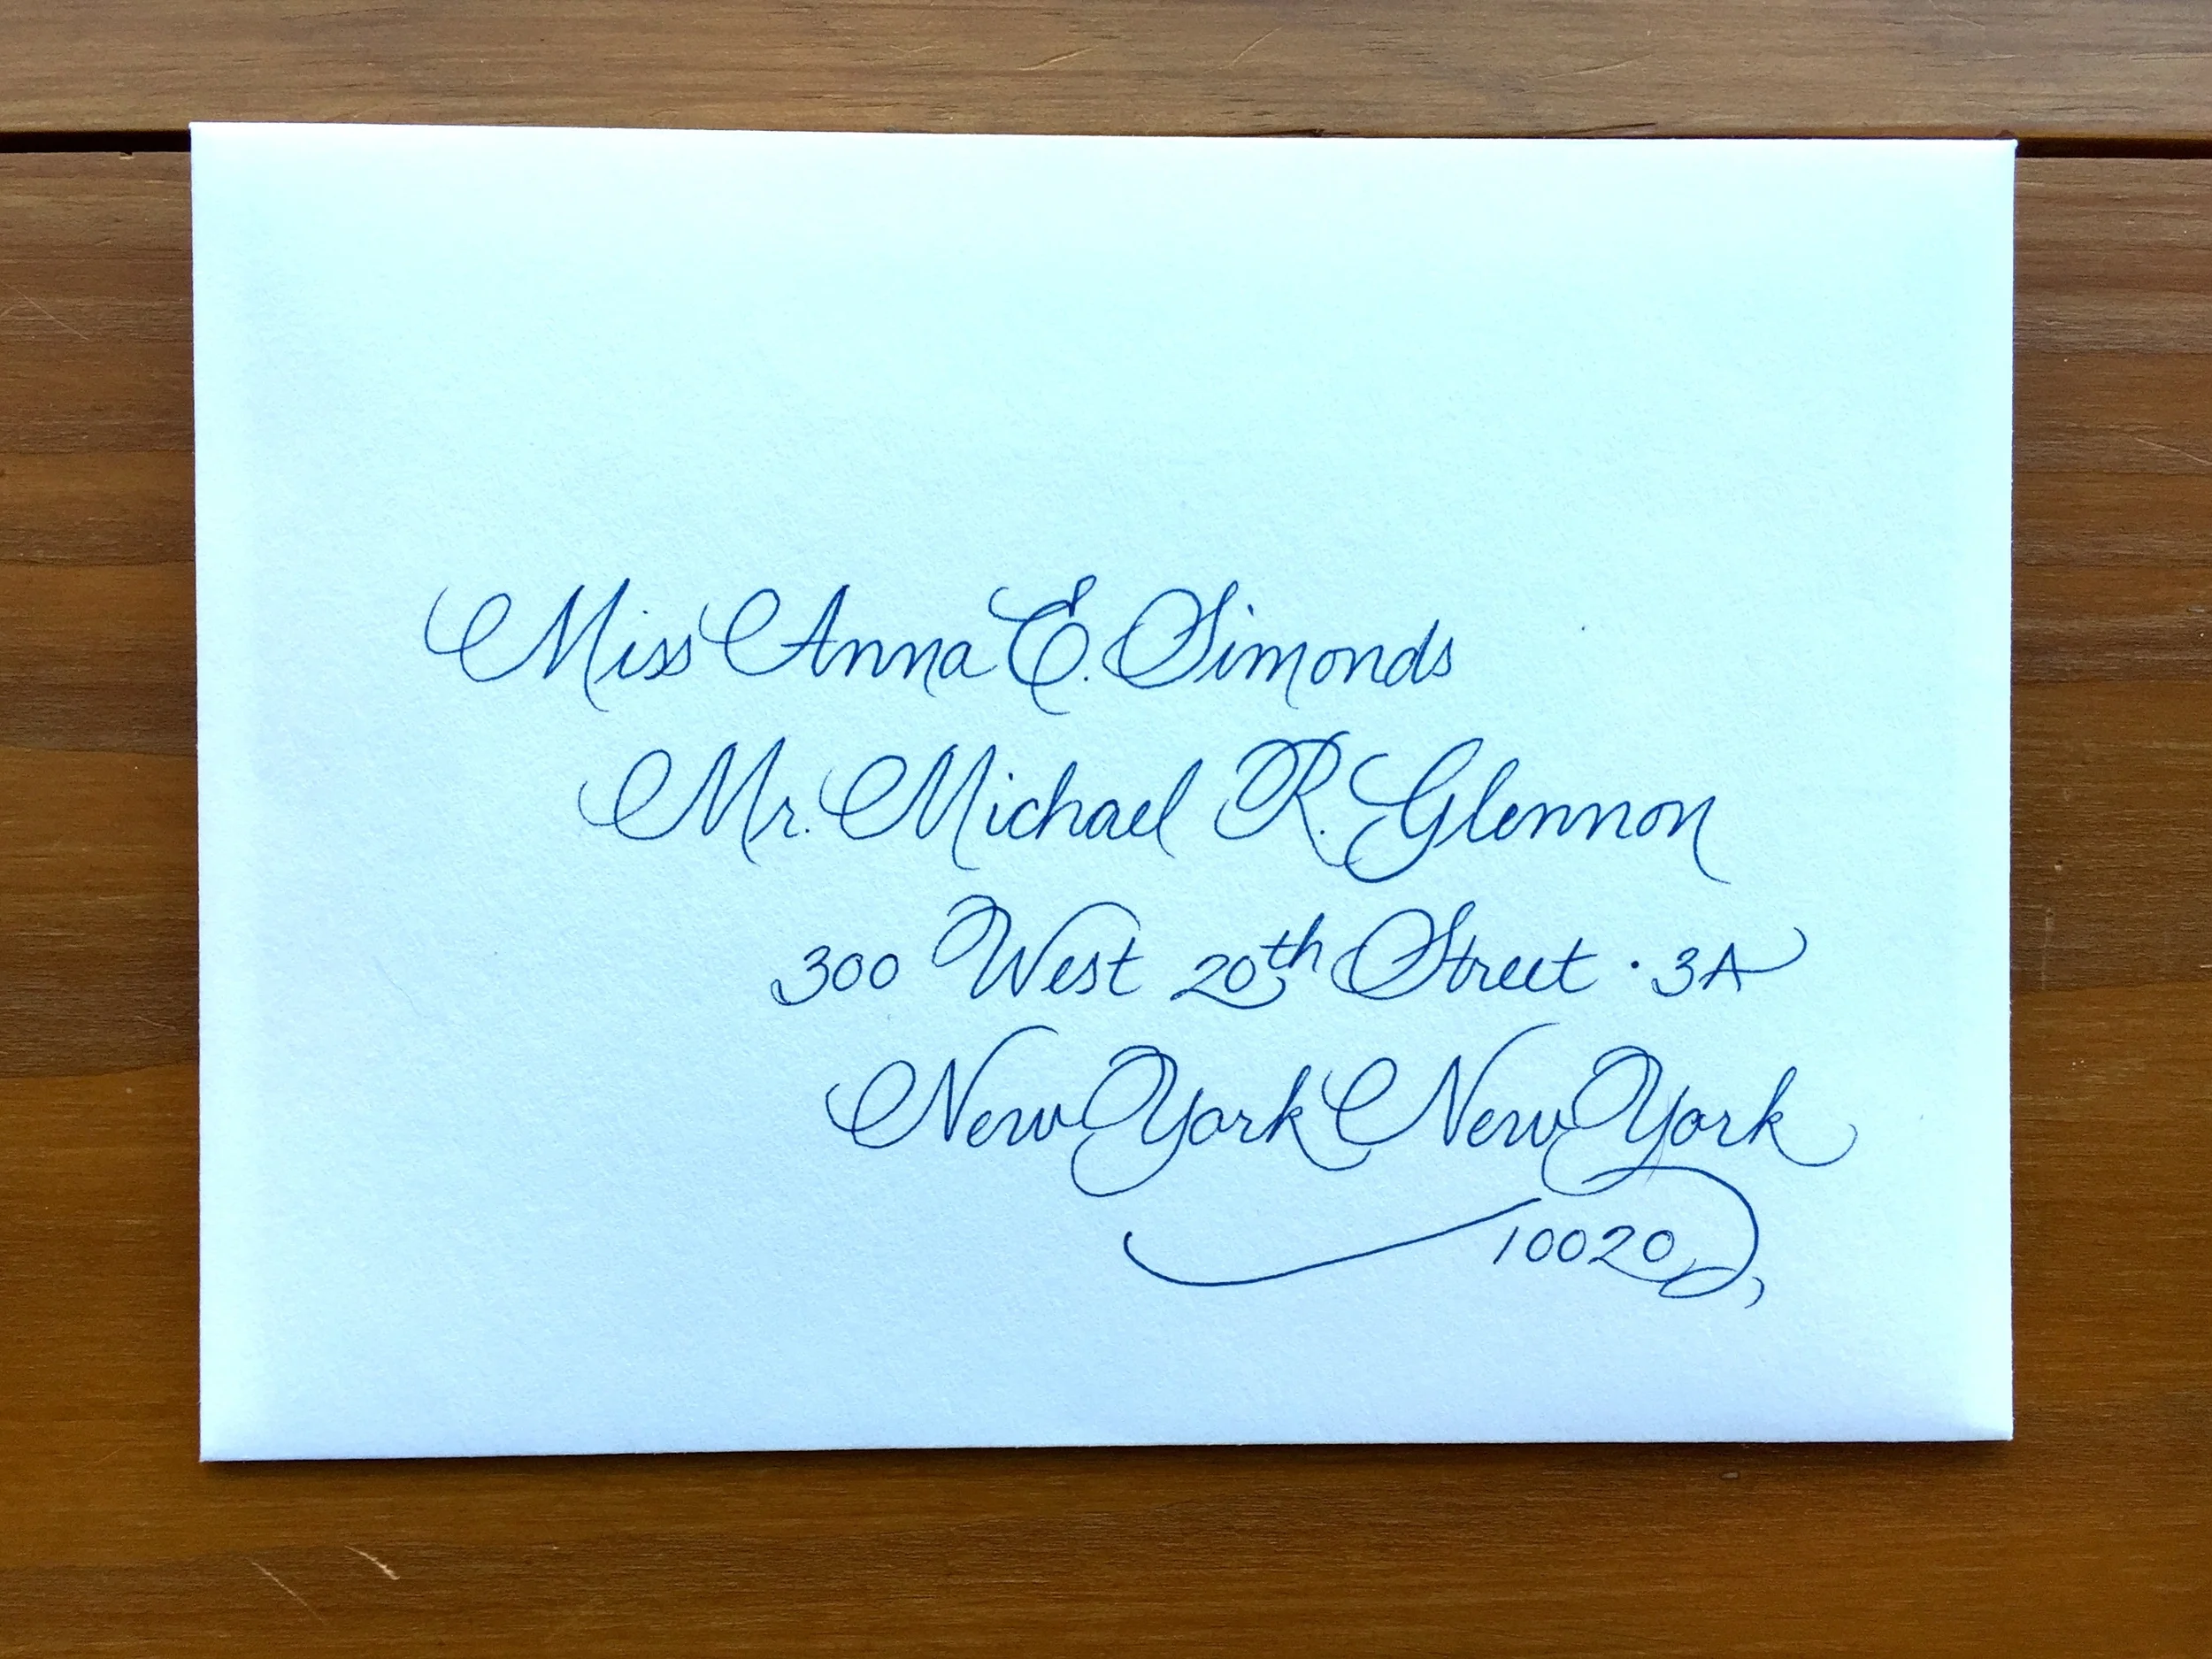 Miss Anna E. Simonds
Mr. Michael R. Glennon
300 West 20th Street · 3A
New York New York
10020